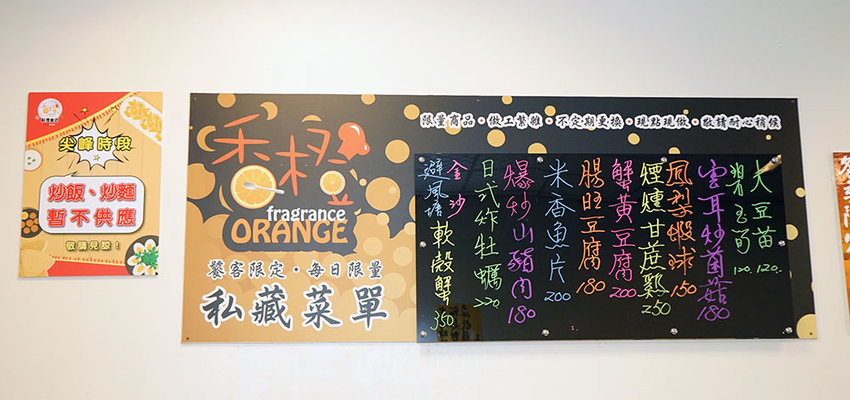 尖峰時段
炒飯、炒麵
暫不供應
敬請見諒！
香橙
fragrance
ORANGE
饕客限定・每日限量
私藏菜單
限量商品・做工繁雜・不定期更換・現點現做・敬請耐心稍候
大豆苗 120.
碧玉筍 120.
雲耳炒菌菇 180
鳳梨蝦球 150
煙燻甘蔗雞 250
蟹黃豆腐 200
腸旺豆腐 180
米香魚片 200
爆炒山豬肉 180
日式炸牡蠣 220
金沙
避風塘 軟殼蟹 350